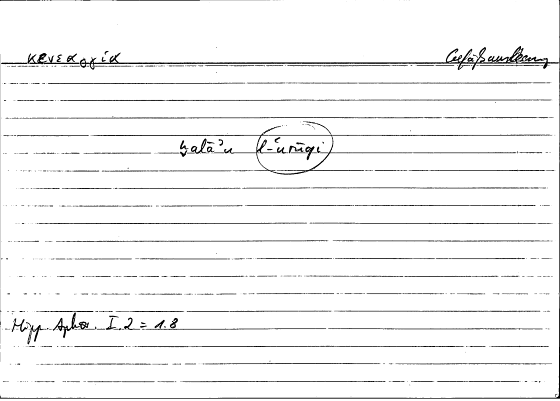 κενεαγγία
Gefäßausleerung
ḫalāʾu l-ʿurūqi
Hipp. Aphor. I.2 = 1.8